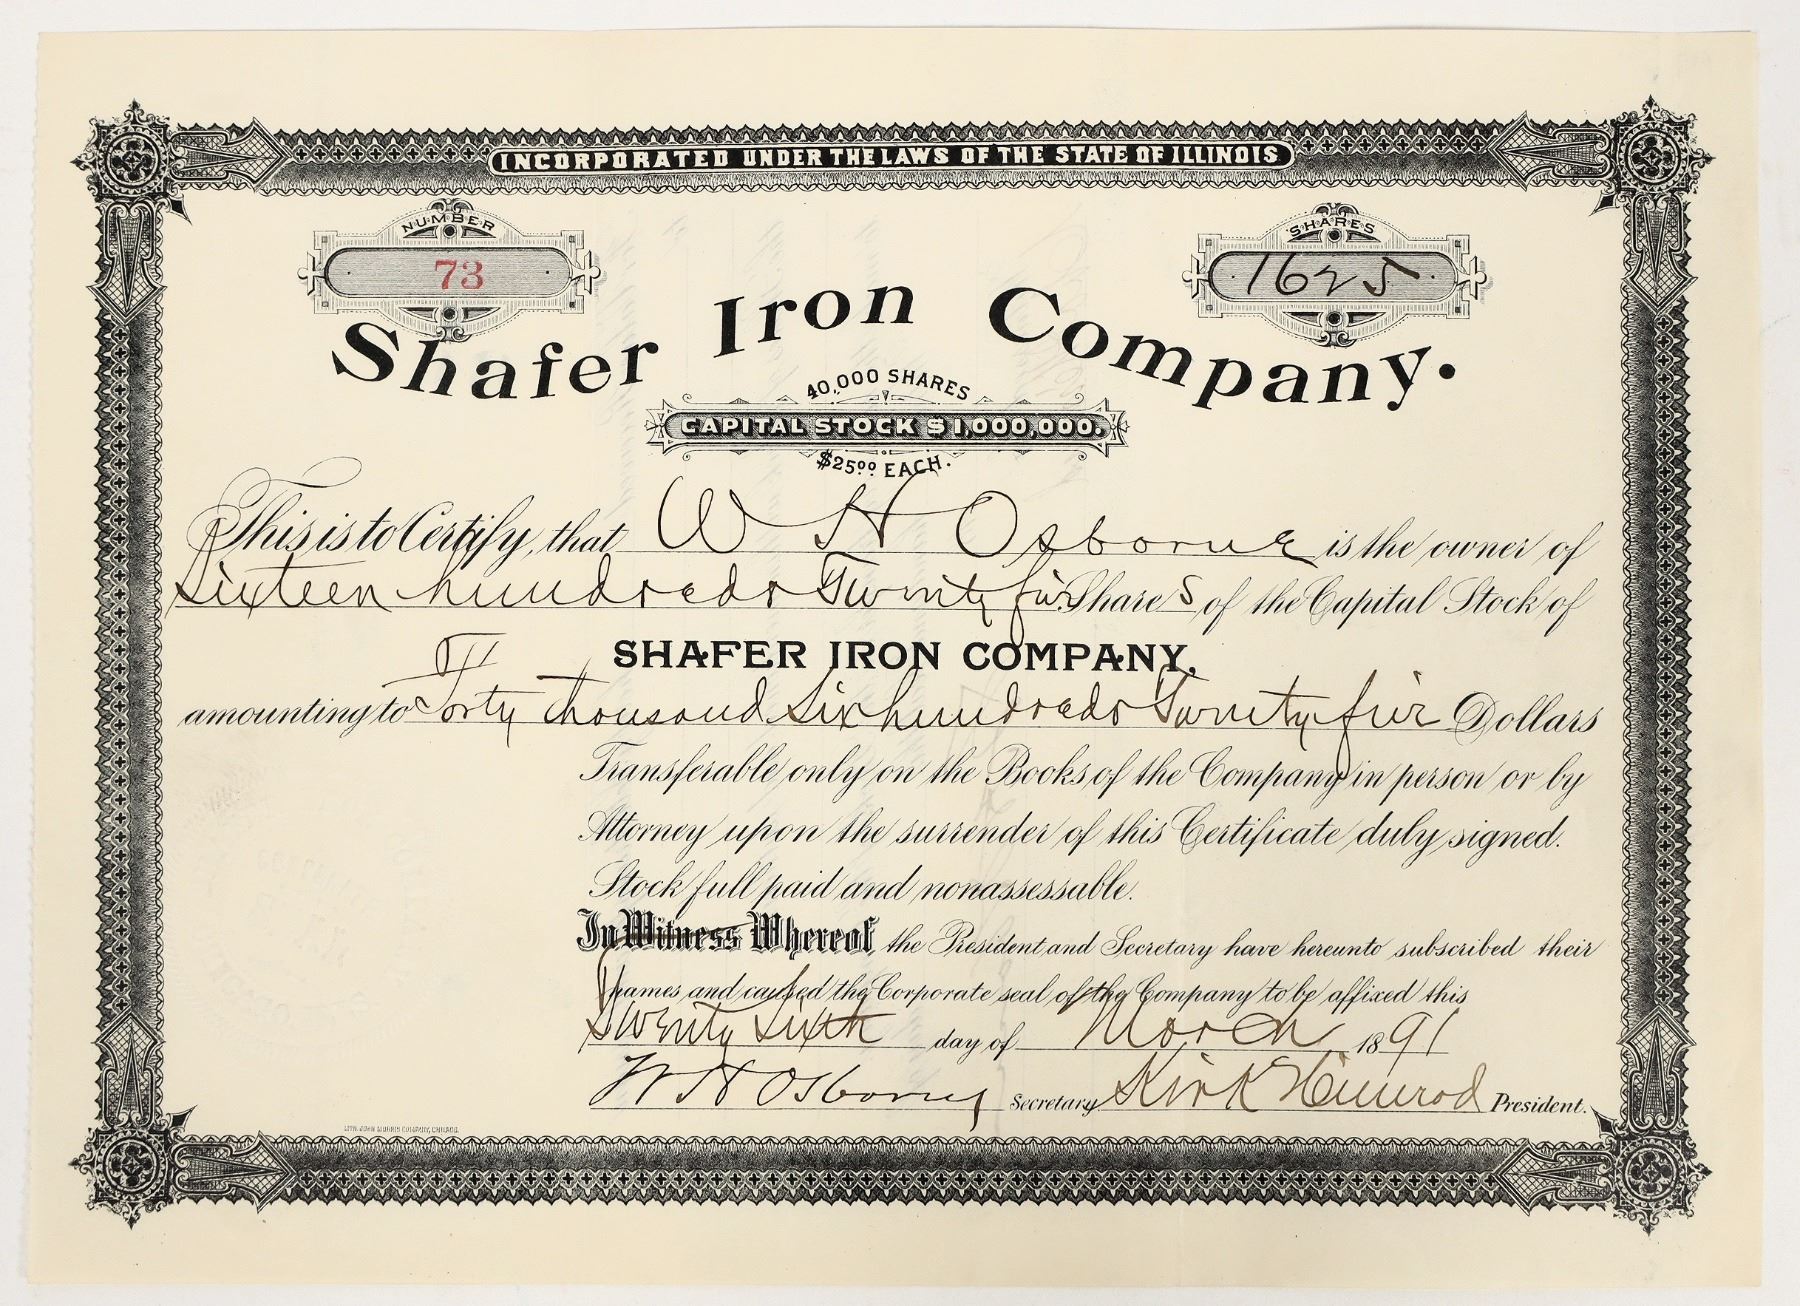 INCORPORATED UNDER THE LAWS OF THE STATE OF ILLINOIS
NUMBER
73
SHARES
1625
Shafer Iron Company.
40,000 SHARES
CAPITAL STOCK $1,000,000.
$25.00 EACH.
This is to Certify, that W H Osborne is the owner of
Sixteen hundred & Twenty five Shares of the Capital Stock of
SHAFER IRON COMPANY.
amounting to Forty Thousand Six hundred & Twenty five Dollars
Transferable only on the Books of the Company in person or by
Attorney upon the surrender of this Certificate duly signed.
Stock full paid and nonassessable.
In Witness Whereof, the President and Secretary have hereunto subscribed their
names and caused the Corporate seal of the Company to be affixed this
Twenty Sixth day of March 1891
W H Osborne Secretary Kirk Himrod President.
LITH. JOHN MORRIS COMPANY, CHICAGO.